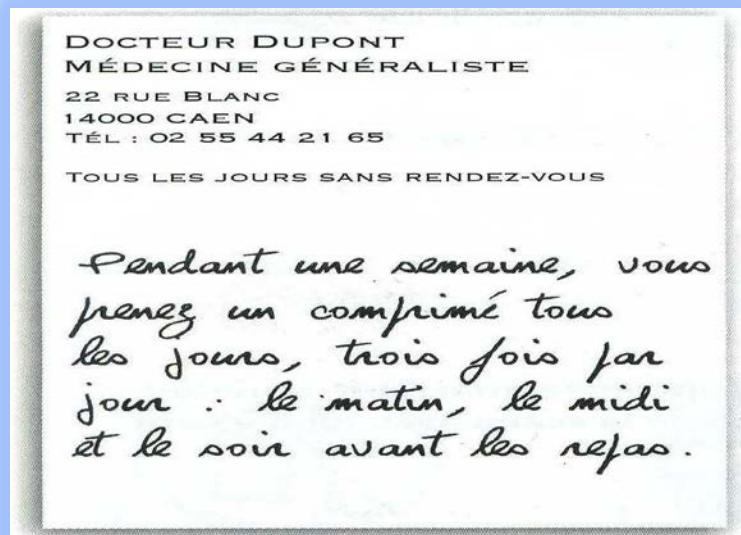 DOCTEUR DUPONT
MÉDECINE GÉNÉRALISTE
22 RUE BLANC
14000 CAEN
TÉL : 02 55 44 21 65
TOUS LES JOURS SANS RENDEZ-VOUS
Pendant une semaine, vous
prenez un comprimé tous
les jours, trois fois par
jour : le matin, le midi
et le soir avant les repas.